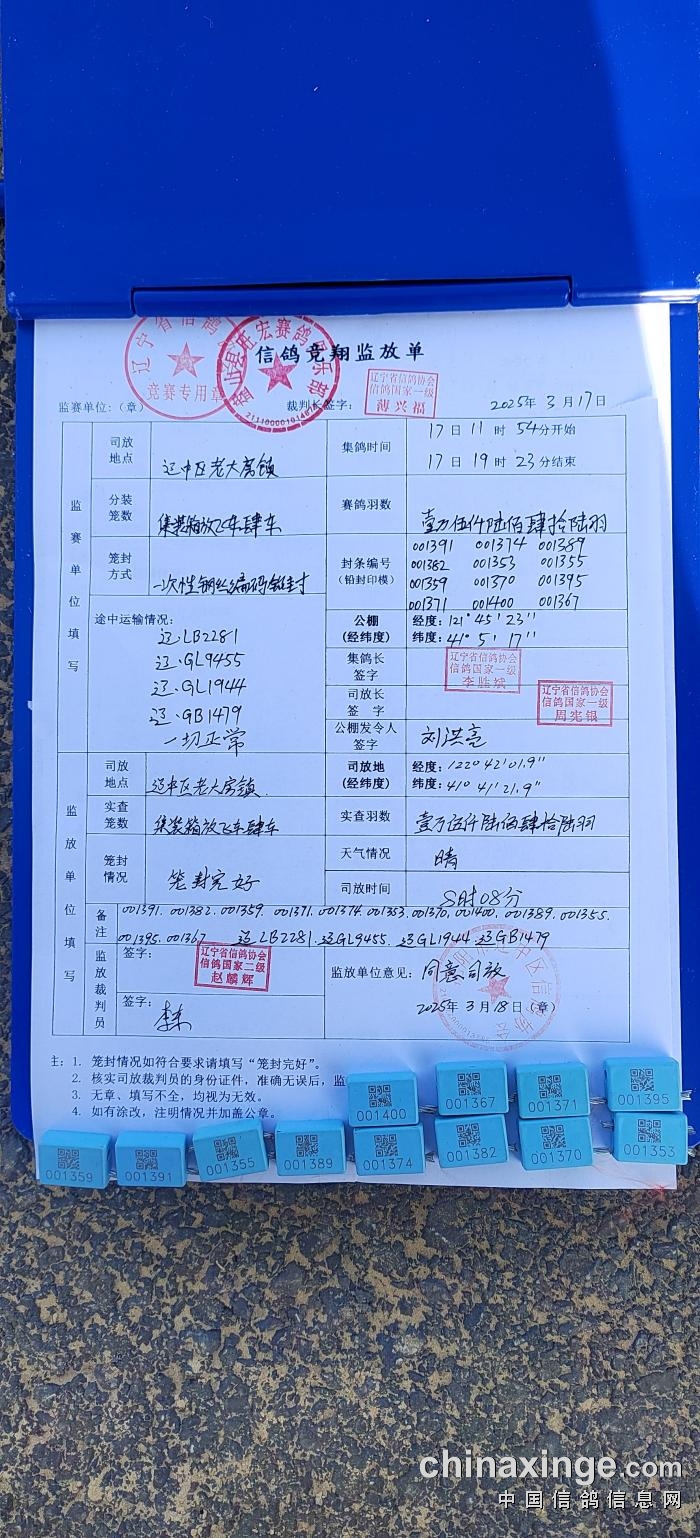 信鸽竞翔监放单
辽宁省信鸽
竞赛专用章
宏赛鸽俱乐部
监赛单位:(章)
裁判长签字:
辽宁省信鸽协会
信鸽国家一级
薄兴福
2025年 3月17日
监赛单位填写
司放地点
辽中区老大房镇
集鸽时间
17日11时54分开始
17日19时23分结束
分装笼数
集装箱放飞车肆车
赛鸽羽数
壹万伍仟陆佰肆拾陆羽
笼封方式
一次性钢丝编码铅封
封条编号
(铅封印模)
001391 001374 001389
001382 001353 001355
001359 001370 001395
001371 001400 001367
途中运输情况:
辽·LB2281
辽·GL9455
辽·GL1944
辽·GB1479
一切正常
公棚
(经纬度)
经度:121°45′23″
纬度:41°5′17″
集鸽长签字
辽宁省信鸽协会
信鸽国家一级
李胜斌
司放长签字
辽宁省信鸽协会
信鸽国家一级
周宪银
公棚发令人签字
刘洪亮
监放单位填写
司放地点
辽中区老大房镇.
司放地
(经纬度)
经度:122°42′01.9″
纬度:41°41′21.9″
实查笼数
集装箱放飞车肆车
实查羽数
壹万伍仟陆佰肆拾陆羽
笼封情况
笼封完好
天气情况
晴
司放时间
8时08分
备注
001391.001382.001359.001371.001374.001353.001370.001400.001389.001355.
001395.001367 辽LB2281.辽GL9455.辽GL1944.辽GB1479
监放裁判员
签字:
辽宁省信鸽协会
信鸽国家二级
赵麟辉
签字:
监放单位意见:同意司放
2025年 3月18日(章)
主:1. 笼封情况如符合要求请填写“笼封完好”。
2. 核实司放裁判员的身份证件,准确无误后,监
3. 无章、填写不全,均视为无效。
4. 如有涂改,注明情况并加盖公章。
001400
001367
001371
001395
001359
001391
001355
001389
001374
001382
001370
001353
chinaxinge.com
中国信鸽信息网